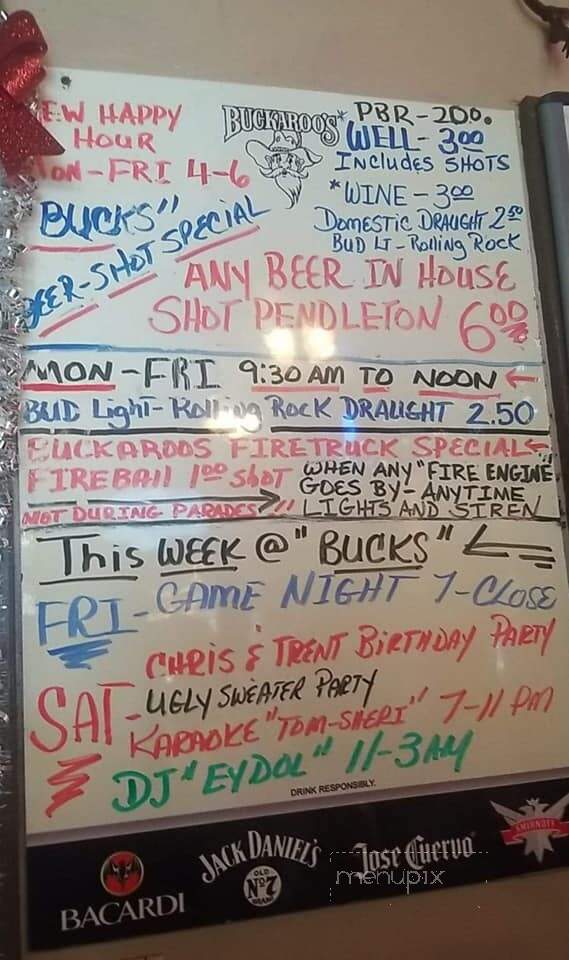 EW HAPPY
HOUR
ON-FRI 4-6
BUCKAROO'S
* PBR-200.
WELL-300
INCLUDES SHOTS
*WINE-300
DOMESTIC DRAUGHT 250
BUD LT-Rolling Rock
BUCKS"
EER-SHOT SPECIAL
ANY BEER IN HOUSE
SHOT PENDLETON 600
MON-FRI 9:30 AM TO NOON
BUD Light-Rolling ROCK DRAUGHT 2.50
BUCKAROOS FIRETRUCK SPECIAL
FIREBAll 100 SHOT WHEN ANY "FIRE ENGINE"
GOES BY-ANYTIME
NOT DURING PARADES!! LIGHTS AND SIREN
This WEEK @ "BUCKS"
FRI-GAME NIGHT 7-CLOSE
CHRIS & TRENT BIRTHDAY PARTY
SAT-UGLY SWEATER PARTY
KARAOKE "TOM-SHERI" 7-11 PM
DJ "EYDOL" 11-3AM
DRINK RESPONSIBLY.
BACARDI
JACK DANIEL'S
OLD
No. 7
BRAND
Jose Cuervo
SMIRNOFF
menupix